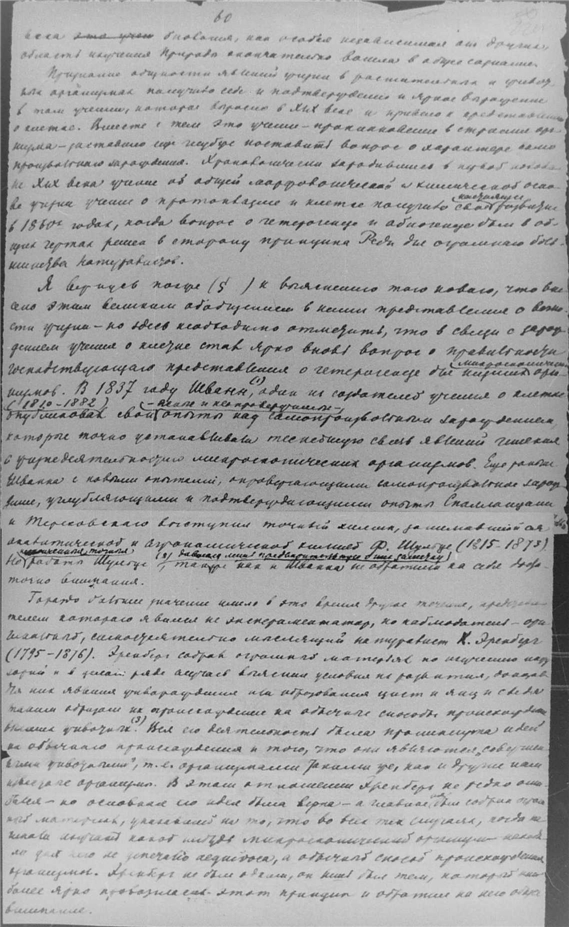 60
века биология, как особая независимая от других
область изучения Природы окончательно вошла в общее сознание.
Признание общности явлений жизни в растительных и живот-
ных организмах получило себе и подтверждение и яркое выражение
в том учении, которое выросло в XIX веке и привело к представлению
о клетке. Вместе с тем это учение - проникновение в строение орга-
низма - заставило еще глубже поставить вопрос о характере само-
произвольного зарождения. Хронологически зародившись в первой полови-
не XIX века учение об общей морфологической и химической осно-
ве жизни учение о протоплазме и клетке получило свое развитие
в 1860х годах, когда вопрос о гетерогенезе и абиогенезе был в об-
щих чертах решен в сторону принципа Реди для огромного боль-
шинства натуралистов.
Я вернусь позже (§ ) к выяснению того нового, что вне-
сено этим великим обобщением в наши представления о вечно-
сти жизни - но здесь необходимо отметить, что в связи с зарож-
дением учения о клетке стал ярко вновь вопрос о правильности
господствующего представления о гетерогенезе для микроскопических орга-
низмов. В 1837 году Шванн,(1) один из создателей учения о клетке
(1810-1882) опубликовал свои опыты над самопроизвольным зарождением,
которые точно устанавливали теснейшую связь явлений гниения
с жизнедеятельностью микроскопических организмов. Еще раньше
Шванна с новыми опытами, опровергающими самопроизвольное зарож-
дение, углубляющими и подтверждающими опыты Спалланцани
и Тереховского выступил точный химик,
аналитической и агрономической химией Ф. Шульце (1815-1873)
Но работы Шульце (2) также как и Шванна не обратили на себя доста-
точно внимания.
Гораздо большее значение имело в это время другое течение, представи-
телем которого явился не экспериментатор, но наблюдатель - ори-
гинальный, самостоятельно мыслящий натуралист Х. Эренберг
(1795-1876). Эренберг собрал огромный материал по изучению инфу-
зорий и в целом ряде случаев выяснил условия их развития, доказал
для них явления инцистирования или образования цист и яиц и свел
таким образом их происхождение на обычные способы происхождения
высших животных.(3) Вся его деятельность была проникнута идеей
их обычного происхождения и того, что они являются "совершен-
ными животными", т.е. организмами такими же, как и другие нам
известные организмы. В этом отношении Эренберг не редко оши-
бался - но основная его идея была верна - а главное был собран огром-
ный материал, указавший на то, что во всех тех случаях, когда на-
чинали изучать какой нибудь микроскопический организм
для него не гетерогенеза, а обычный способ происхождения
организмов. Эренберг не был один, он лишь был тем, который наи-
более ярко провозгласил этот принцип и обратил на него общее
внимание.